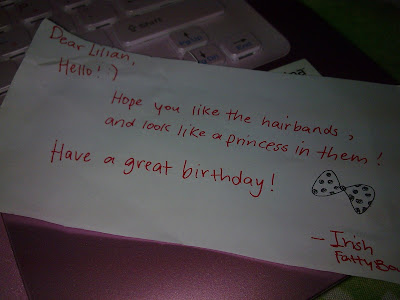 Dear Lilian,
Hello! :)
Hope you like the hairbands,
and look like a princess in them!
Have a great birthday!
- Irish